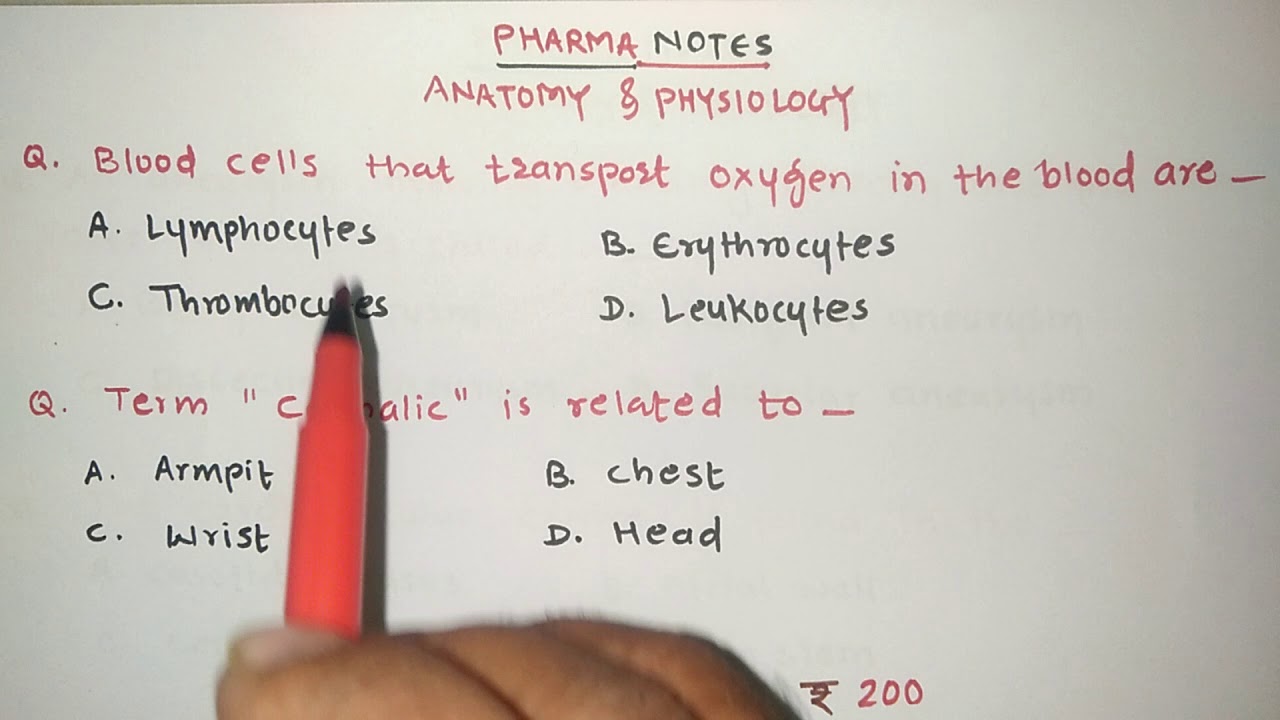 PHARMA NOTES
ANATOMY & PHYSIOLOGY
Q. Blood cells that transport oxygen in the blood are –
A. Lymphocytes B. Erythrocytes
C. Thrombocytes D. Leukocytes
Q. Term " " is related to –
A. Armpit B. chest
C. Wrist D. Head
₹ 200